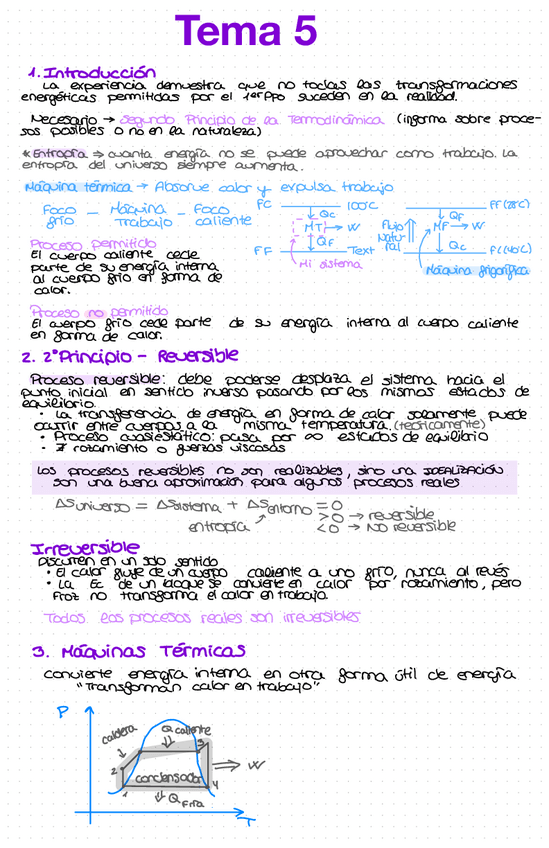 Tema 5
1. Introducción
La experiencia demuestra que no todas las transformaciones
energéticas permitidas por el 1er PPO suceden en la realidad.
Necesario → Segundo Principio de la Termodinámica (informa sobre proce-
sos posibles o no en la naturaleza)
* Entropía ⇒ cuanta energía no se puede aprovechar como trabajo. La
entropía del universo siempre aumenta.
Máquina térmica → Absorve calor y expulsa trabajo
Foco frío — Máquina trabajo — Foco caliente
FC 100ºC
Qc
MT → W
QF
FF Text
Mi sistema
FF(28ºC)
QF
MF → W
Flujo Natural
Qc
Máquina frigorífica
Proceso permitido
El cuerpo caliente cede
parte de su energía interna
al cuerpo frío en forma de
calor.
Proceso no permitido
El cuerpo frío cede parte de su energía interna al cuerpo caliente
en forma de calor.
2. 2º Principio - Reversible
Proceso reversible: debe poderse desplaza el sistema hacia el
punto inicial en sentido inverso pasando por los mismos estados de
equilibrio.
• La transferencia de energía en forma de calor solamente puede
ocurrir entre cuerpos a la misma temperatura. (teóricamente)
• Proceso cuasiestático: pasa por ∞ estados de equilibrio
• ∄ rozamiento o fuerzas viscosas
Los procesos reversibles no son realizables, sino una IDEALIZACIÓN
son una buena aproximación para algunos procesos reales
ΔSuniverso = ΔSsistema + ΔSentorno = 0
>0 → reversible
entropía
<0 → NO reversible
Irreversible
Discurren en un solo sentido
• El calor fluye de un cuerpo caliente a uno frío, nunca al revés
• La Ec de un bloque se convierte en calor por rozamiento, pero
Froz no transforma el calor en trabajo.
Todos los procesos reales son irreversibles
3. Máquinas Térmicas
convierte energía interna en otra forma útil de energía
"Transforman calor en trabajo"
P
caldera
Q caliente
2
3
condensador
W
1
4
Q Fría
T